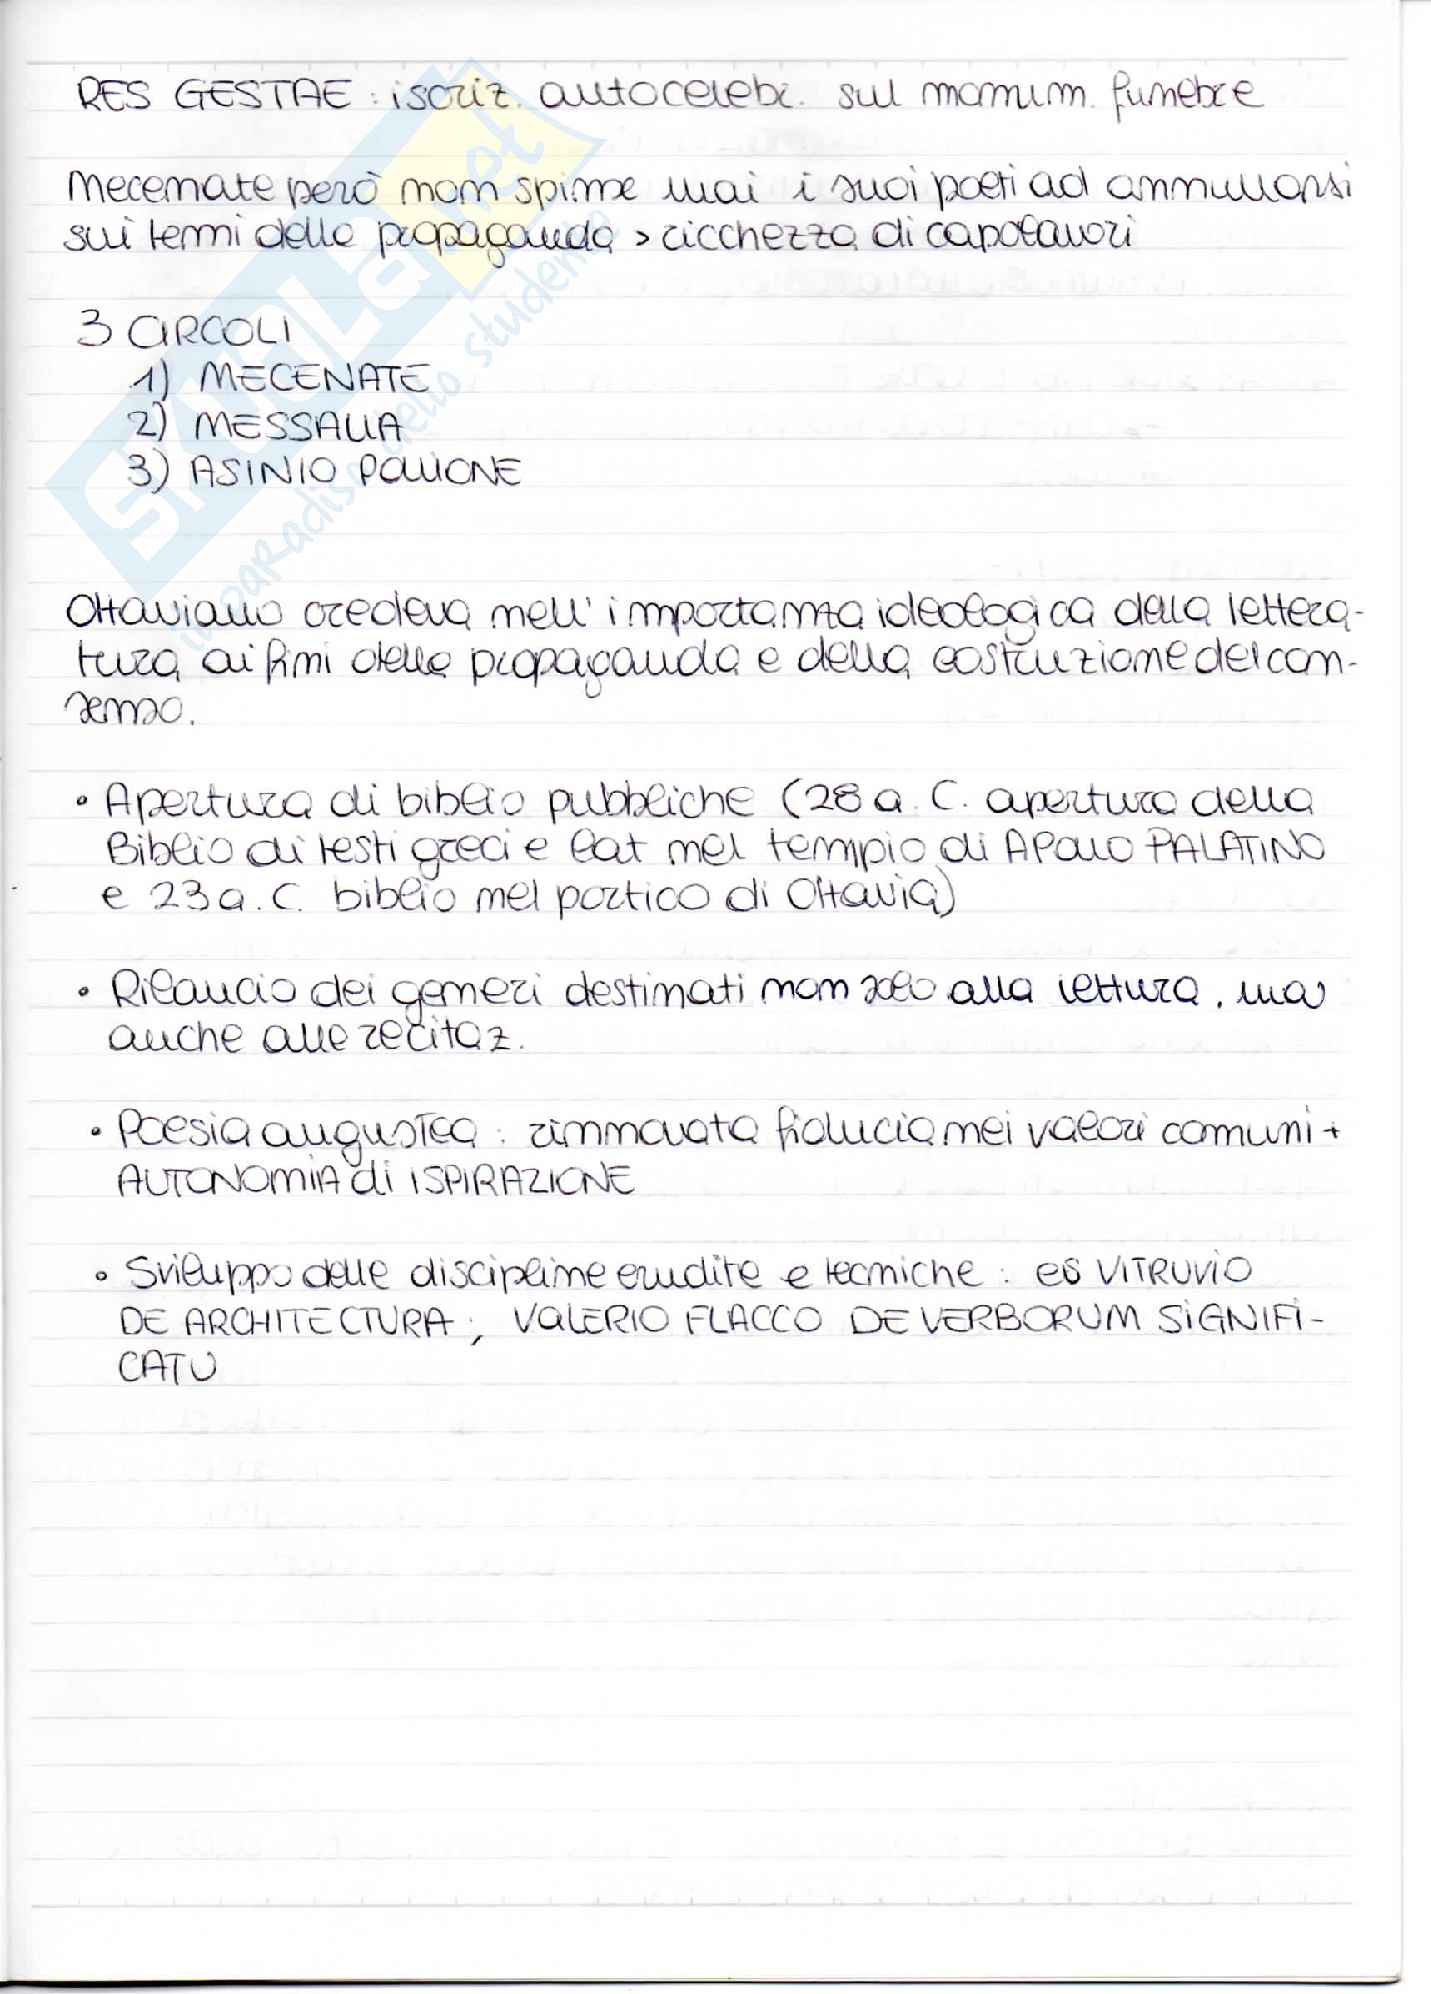 RES GESTAE : iscriz. autocelebr. sul monum. funebre
Mecenate però non spinse mai i suoi poeti ad annullarsi
sui temi della propaganda > ricchezza di capolavori
3 CIRCOLI
1) MECENATE
2) MESSALLA
3) ASINIO POLLIONE
Ottaviano credeva nell'importanza ideologica della lettera-
tura ai fini della propaganda e della costruzione del con-
senso.
• Apertura di biblio pubbliche (28 a.C. apertura della
Biblio di testi greci e lat nel tempio di APOLLO PALATINO
e 23 a.C. biblio nel portico di Ottavia)
• Rilancio dei generi destinati non solo alla lettura, ma
anche alle recitaz.
• Poesia augustea : rinnovata fiducia nei valori comuni +
AUTONOMIA di ISPIRAZIONE
• Sviluppo delle discipline erudite e tecniche : es VITRUVIO
DE ARCHITECTURA ; VALERIO FLACCO DE VERBORUM SIGNIFI-
CATU
SKUOLA.net
il paradiso dello studente